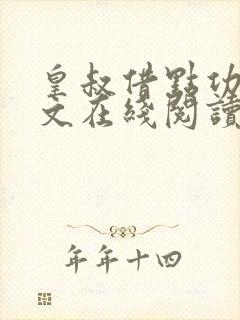 皇叔借點功
文在綫閱讀
年年十四